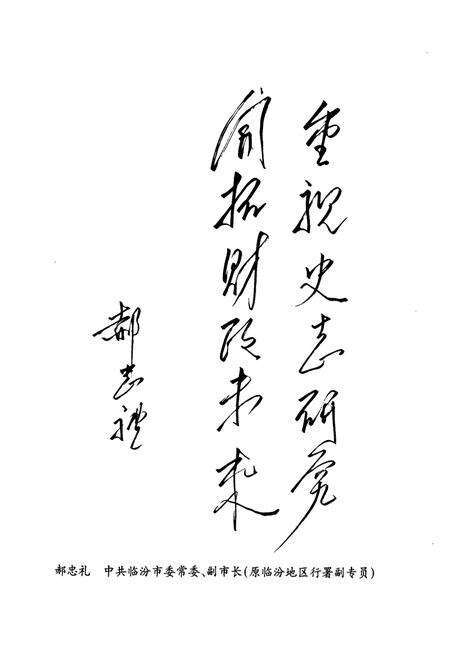 重视史志研究
開拓财政未来
郝忠礼
郝忠礼　中共临汾市委常委、副市长(原临汾地区行署副专员)